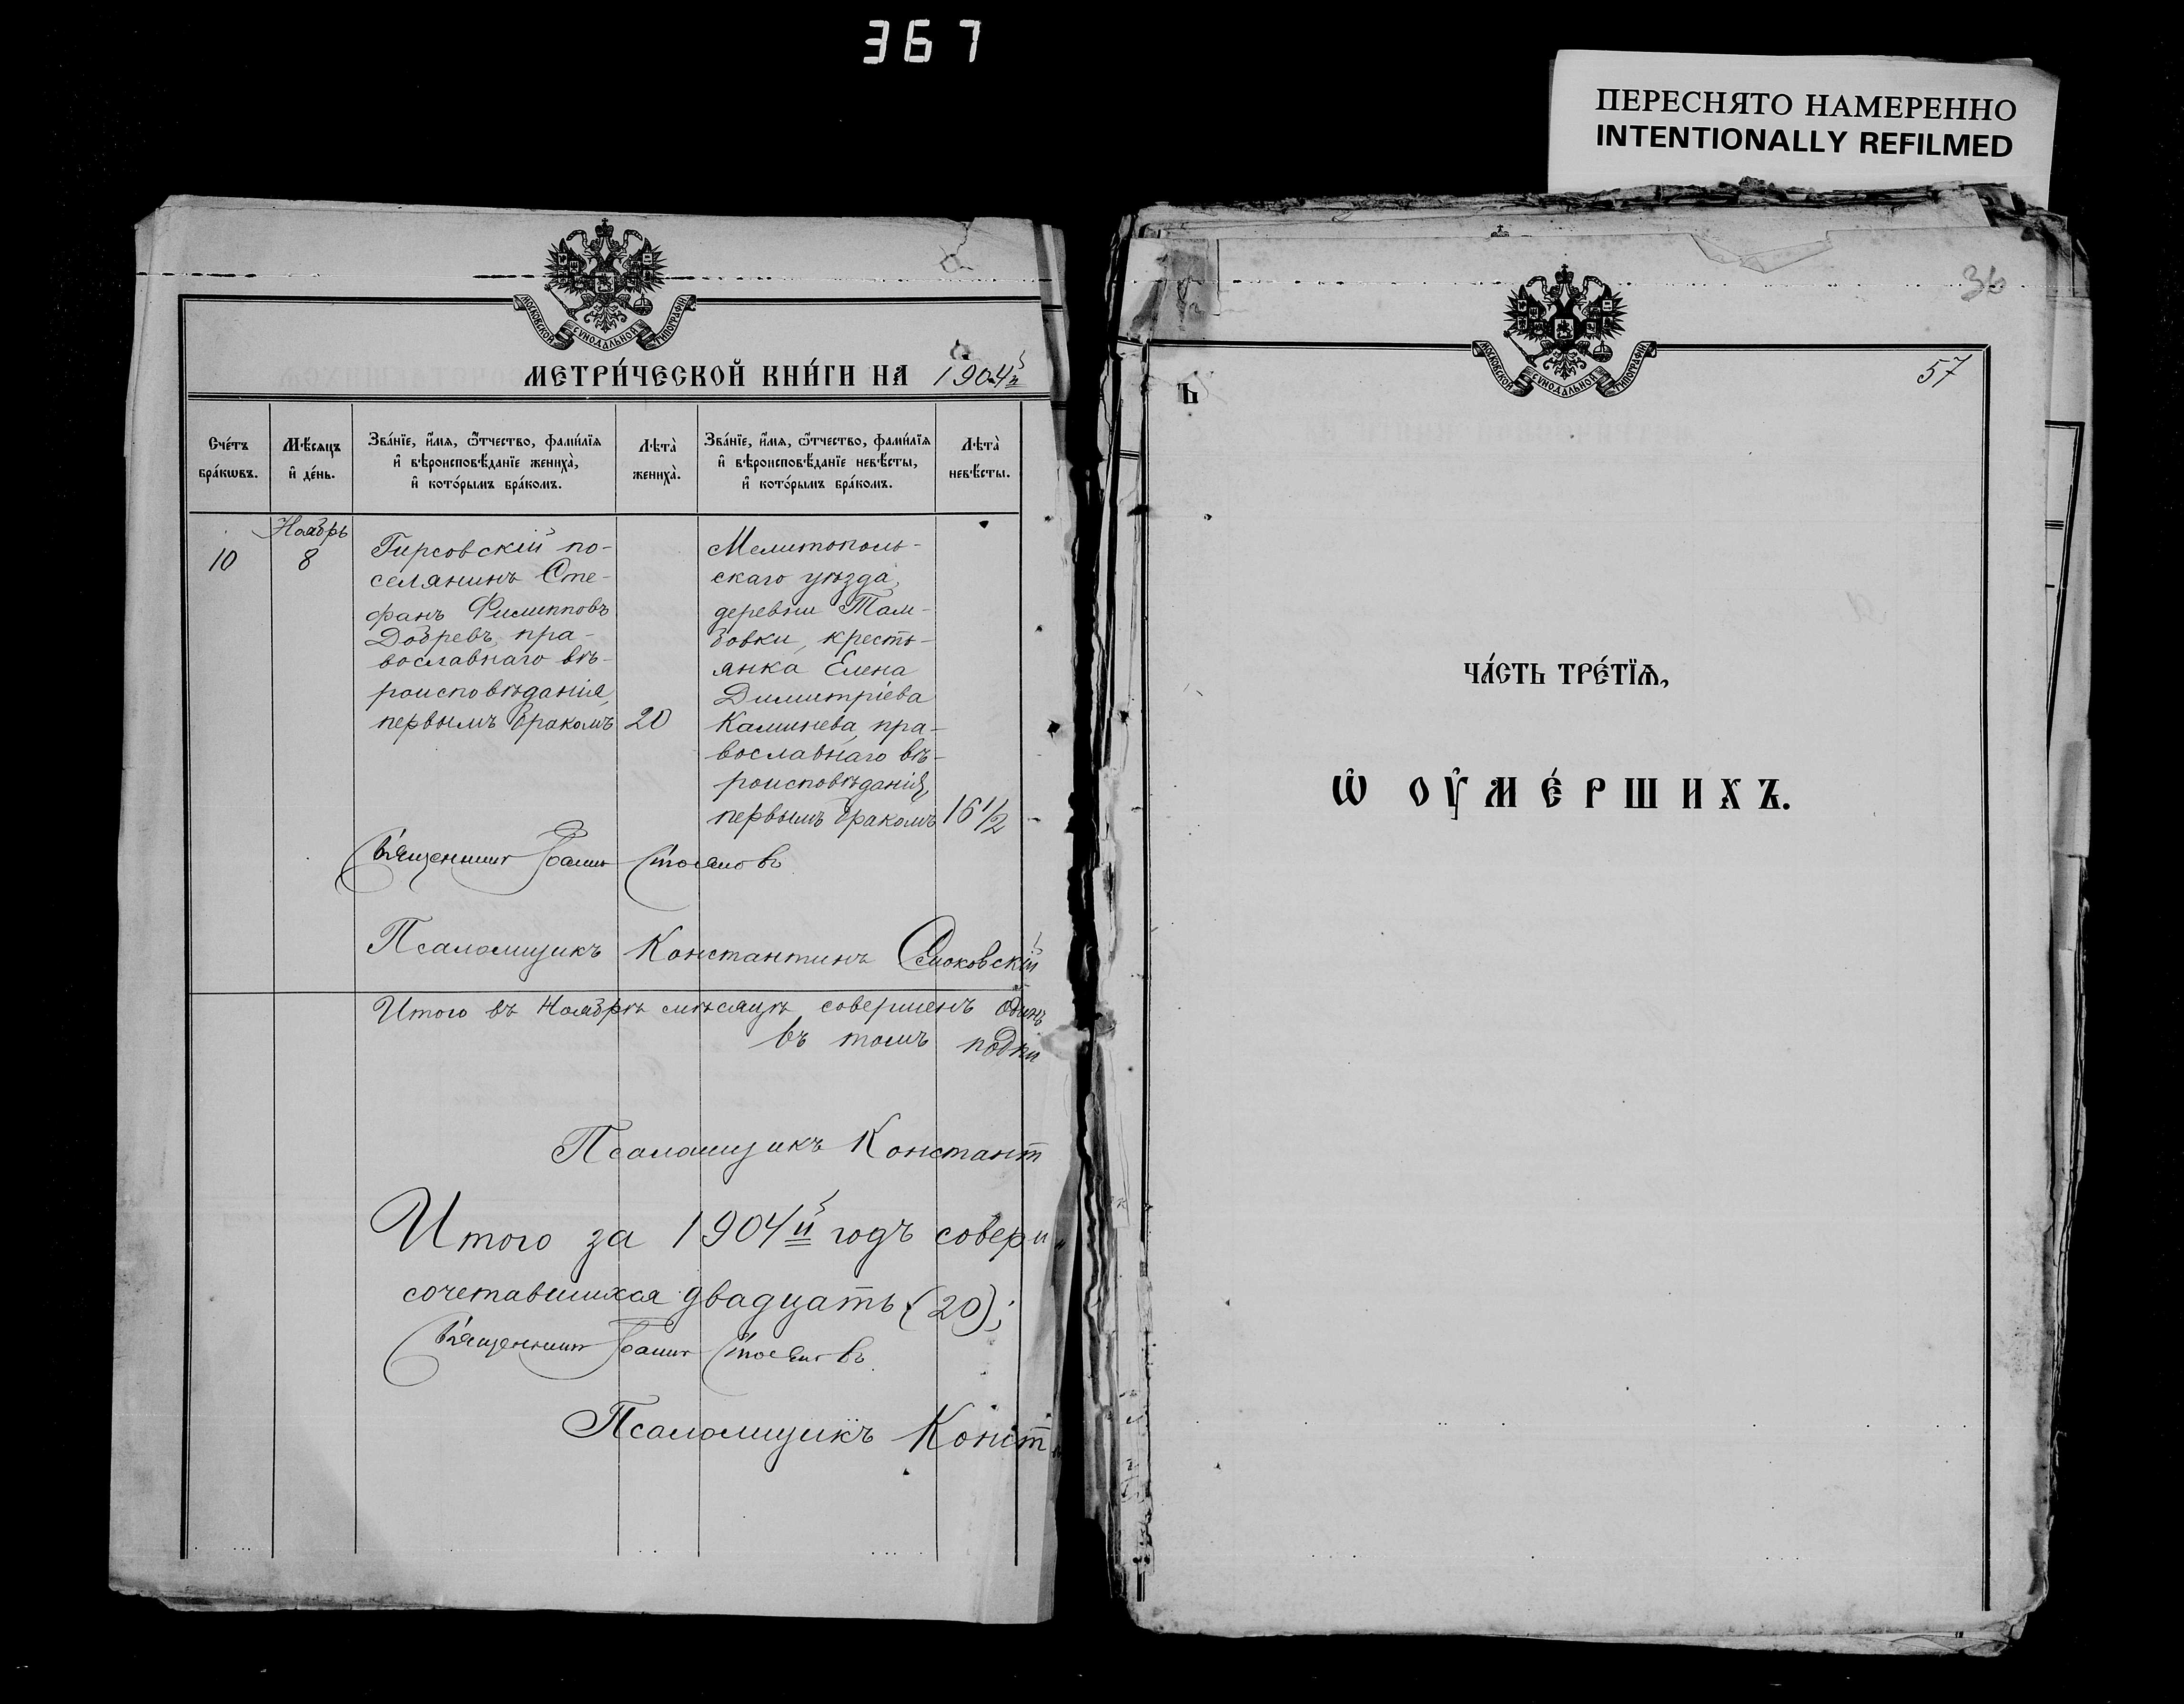 367
ПЕРЕСНЯТО НАМЕРЕННО
INTENTIONALLY REFILMED
МОСКОВСКОЙ СѴНОДАЛЬНОЙ ТИПОГРАФІИ
МЕТРИ́ЧЕСКОЙ КНИ́ГИ НА 1904й
Сче́тъ бра́кѡвъ.
Мѣ́сяцъ и҆ де́нь.
Зва́нїе, и҆́мѧ, ѻ҆́тчество, фами́лїѧ
и҆ вѣроисповѣ́данїе жениха̀,
и҆ кото́рымъ бра́комъ.
Лѣта̀ жениха̀.
Зва́нїе, и҆́мѧ, ѻ҆́тчество, фами́лїѧ
и҆ вѣроисповѣ́данїе невѣ́сты,
и҆ кото́рымъ бра́комъ.
Лѣта̀ невѣ́сты.
Ноябрь
10
8
Гирсовскій по-
селянинъ Сте-
фанъ Филипповъ
Добревъ, пра-
вославнаго вѣ-
роисповѣданія,
первымъ бракомъ
20
Мелитополь-
скаго уѣзда,
деревни Там-
бовки, кресть-
янка Елена
Димитріева
Калинева, пра-
вославнаго вѣ-
роисповѣданія,
первымъ бракомъ
16 1/2
Священникъ Іоаннъ Стояновъ
Псаломщикъ Константинъ
Итого въ Ноябрѣ мѣсяцѣ совершенъ одинъ
въ томъ подпи
Псаломщикъ Констант
Итого за 1904й годъ соверш
сочетавшихся двадцать (20);
Священникъ Іоаннъ Стояновъ
Псаломщикъ Конст
36
МОСКОВСКОЙ СѴНОДАЛЬНОЙ ТИПОГРАФІИ
57
Ъ
ЧА́СТЬ ТРЕ́ТЇѦ,
Ѡ҆ ОУ҆МЕ́РШИХЪ.